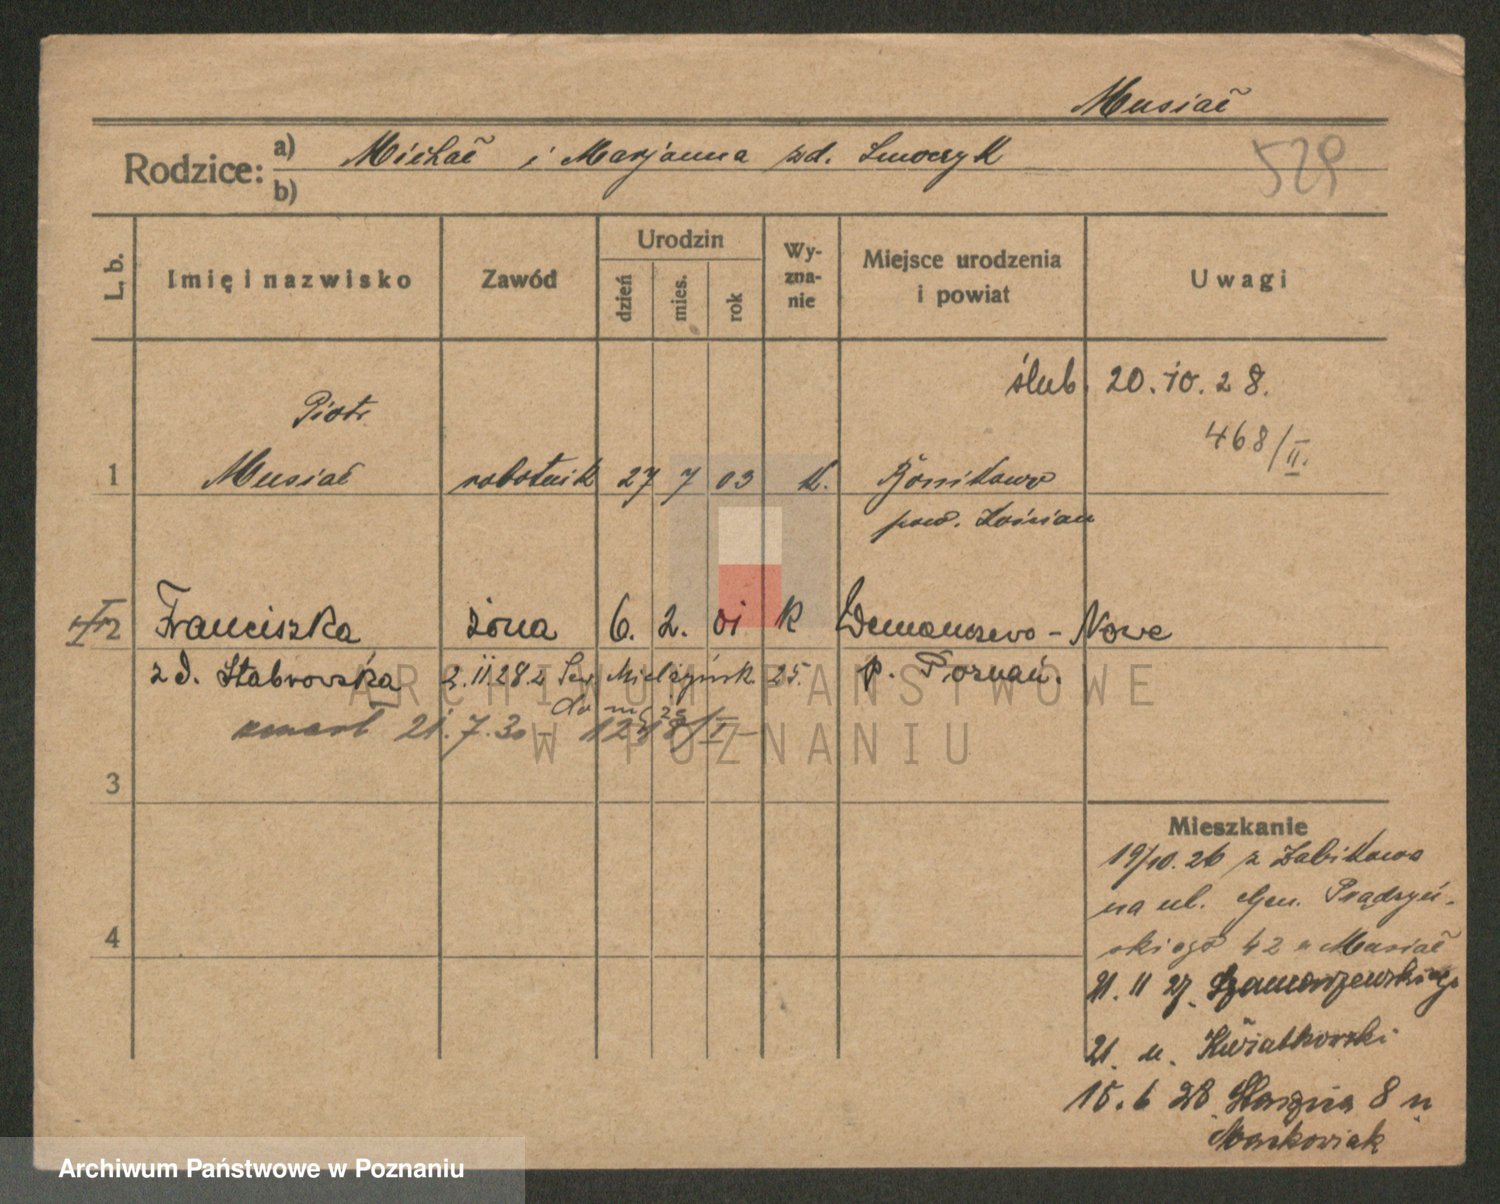 Musiał
Rodzice: a) Michał i Marjanna zd. Smoczyk
b)
529
L. b.
Imię i nazwisko
Zawód
Urodzin
dzień
mies.
rok
Wy-
zna-
nie
Miejsce urodzenia
i powiat
Uwagi
ślub. 20.10.28.
468/II.
Piotr
1 Musiał robotnik 27 7 03 k. Bonikowo
pow. Kościan
2 Franciszka żona 6. 2. 01 k Nowe
zd. Stabrowska 2.11.28 z Mielżyńsk. 25. p. Poznań.
do męża
zmarł 21.7.30 -
3
4
Mieszkanie
19/10.26 z Żabikowa
na ul. Gen. Prądzyń-
skiego 42 u Musiał
21. 11 27. Szamarzewskiego
21. u. Kwiatkowski
15.6 28 Staszica 8 u
Maćkowiak
ARCHIWUM PAŃSTWOWE
W POZNANIU
Archiwum Państwowe w Poznaniu